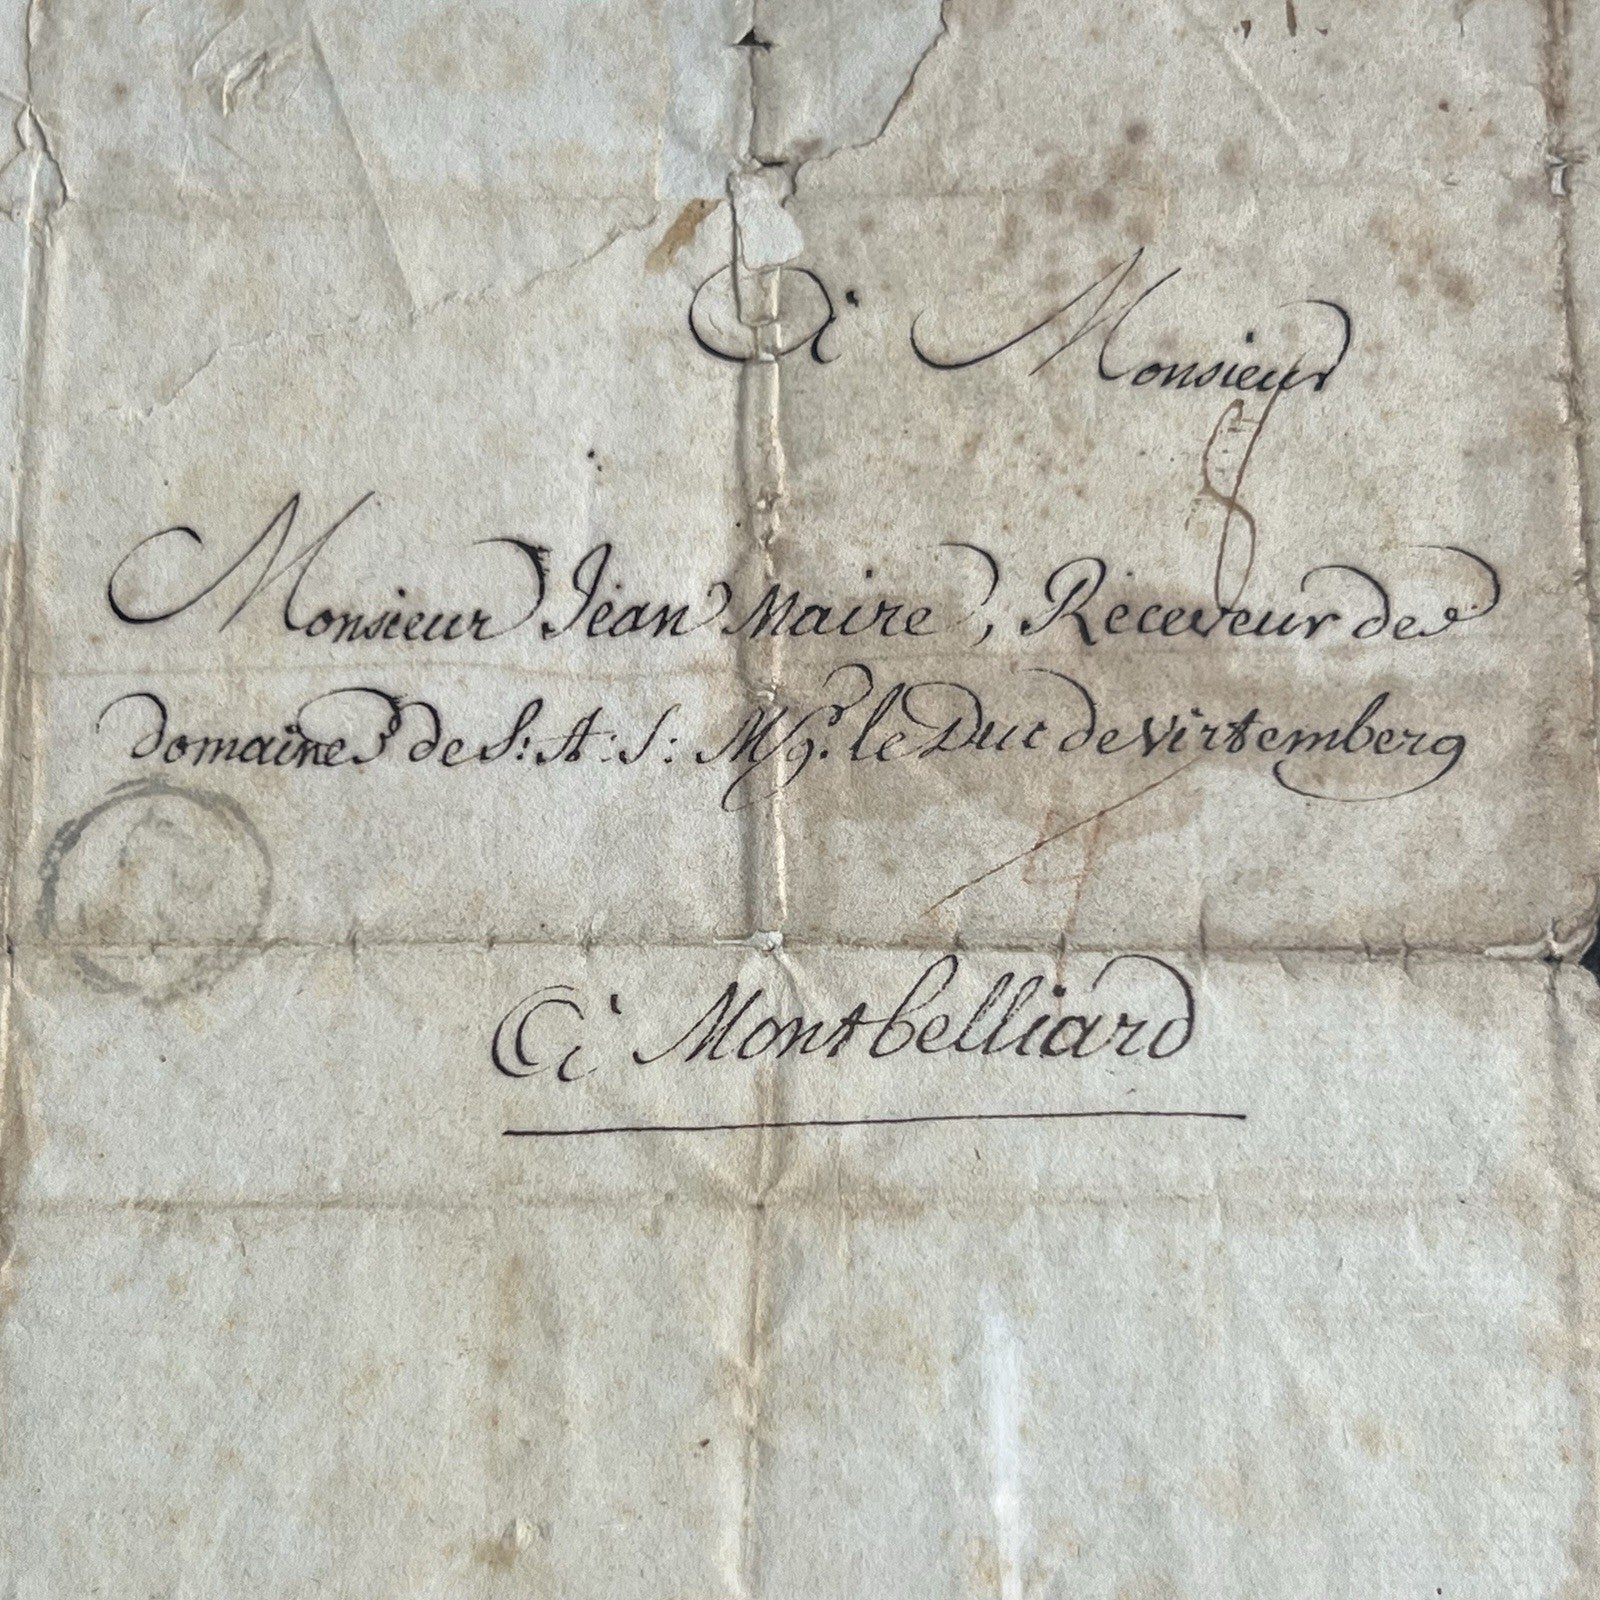 à Monsieur
Monsieur Jean Maire, Receveur des
domaines de S: A: S: Mgr. le Duc de Virtemberg
à Montbelliard